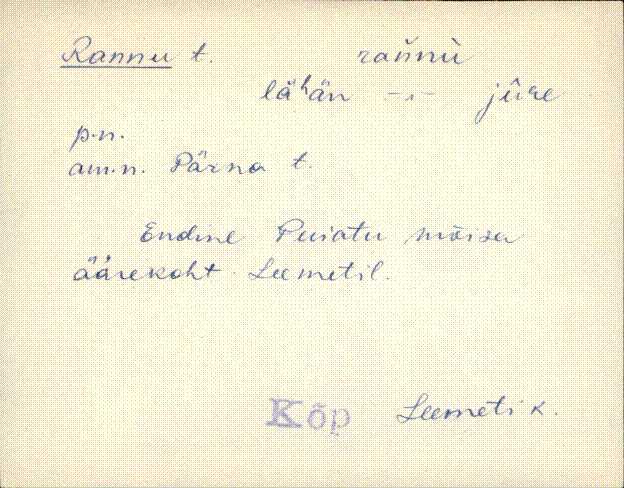 Rannu t. rañnù
lähän -"- jûre
p.n.
am.n. Pärna t.
Endine Puiatu mõisa
äärekoht Leemetil.
Kõp Leemeti k.